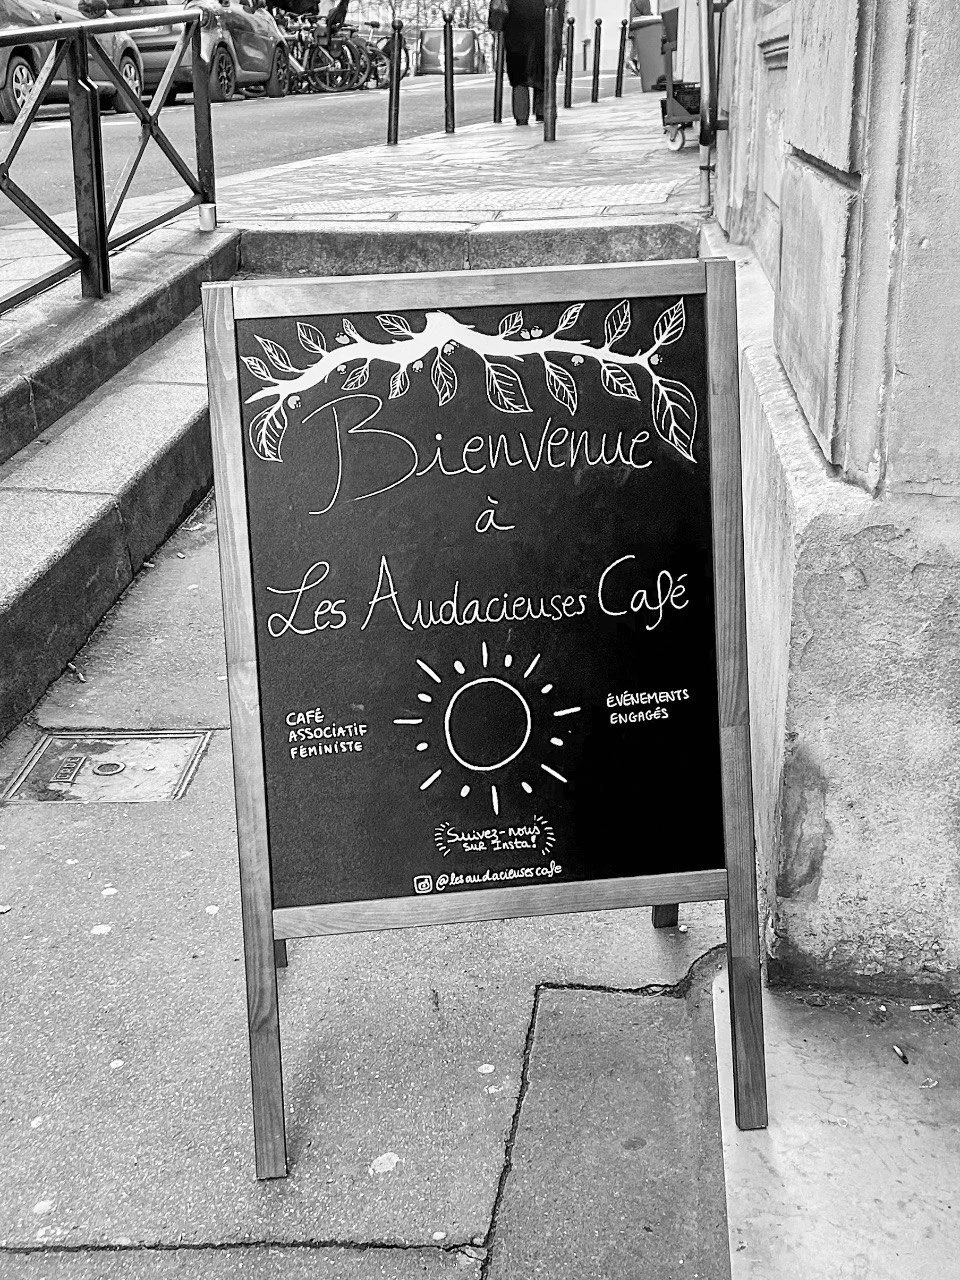 Bienvenue
à
Les Audacieuses Café
CAFÉ
ASSOCIATIF
FÉMINISTE
ÉVÉNEMENTS
ENGAGÉS
Suivez-nous
sur Insta!
@lesaudacieusescafe